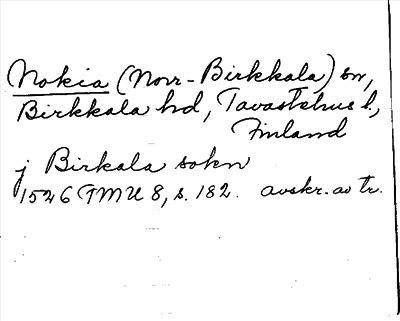 Nokia (Norr-Birkkala) sn,
Birkkala hd, Tavastehus l.,
Finland
j Birkala sokn
1526 FMU 8, s. 182. avskr. av tr.